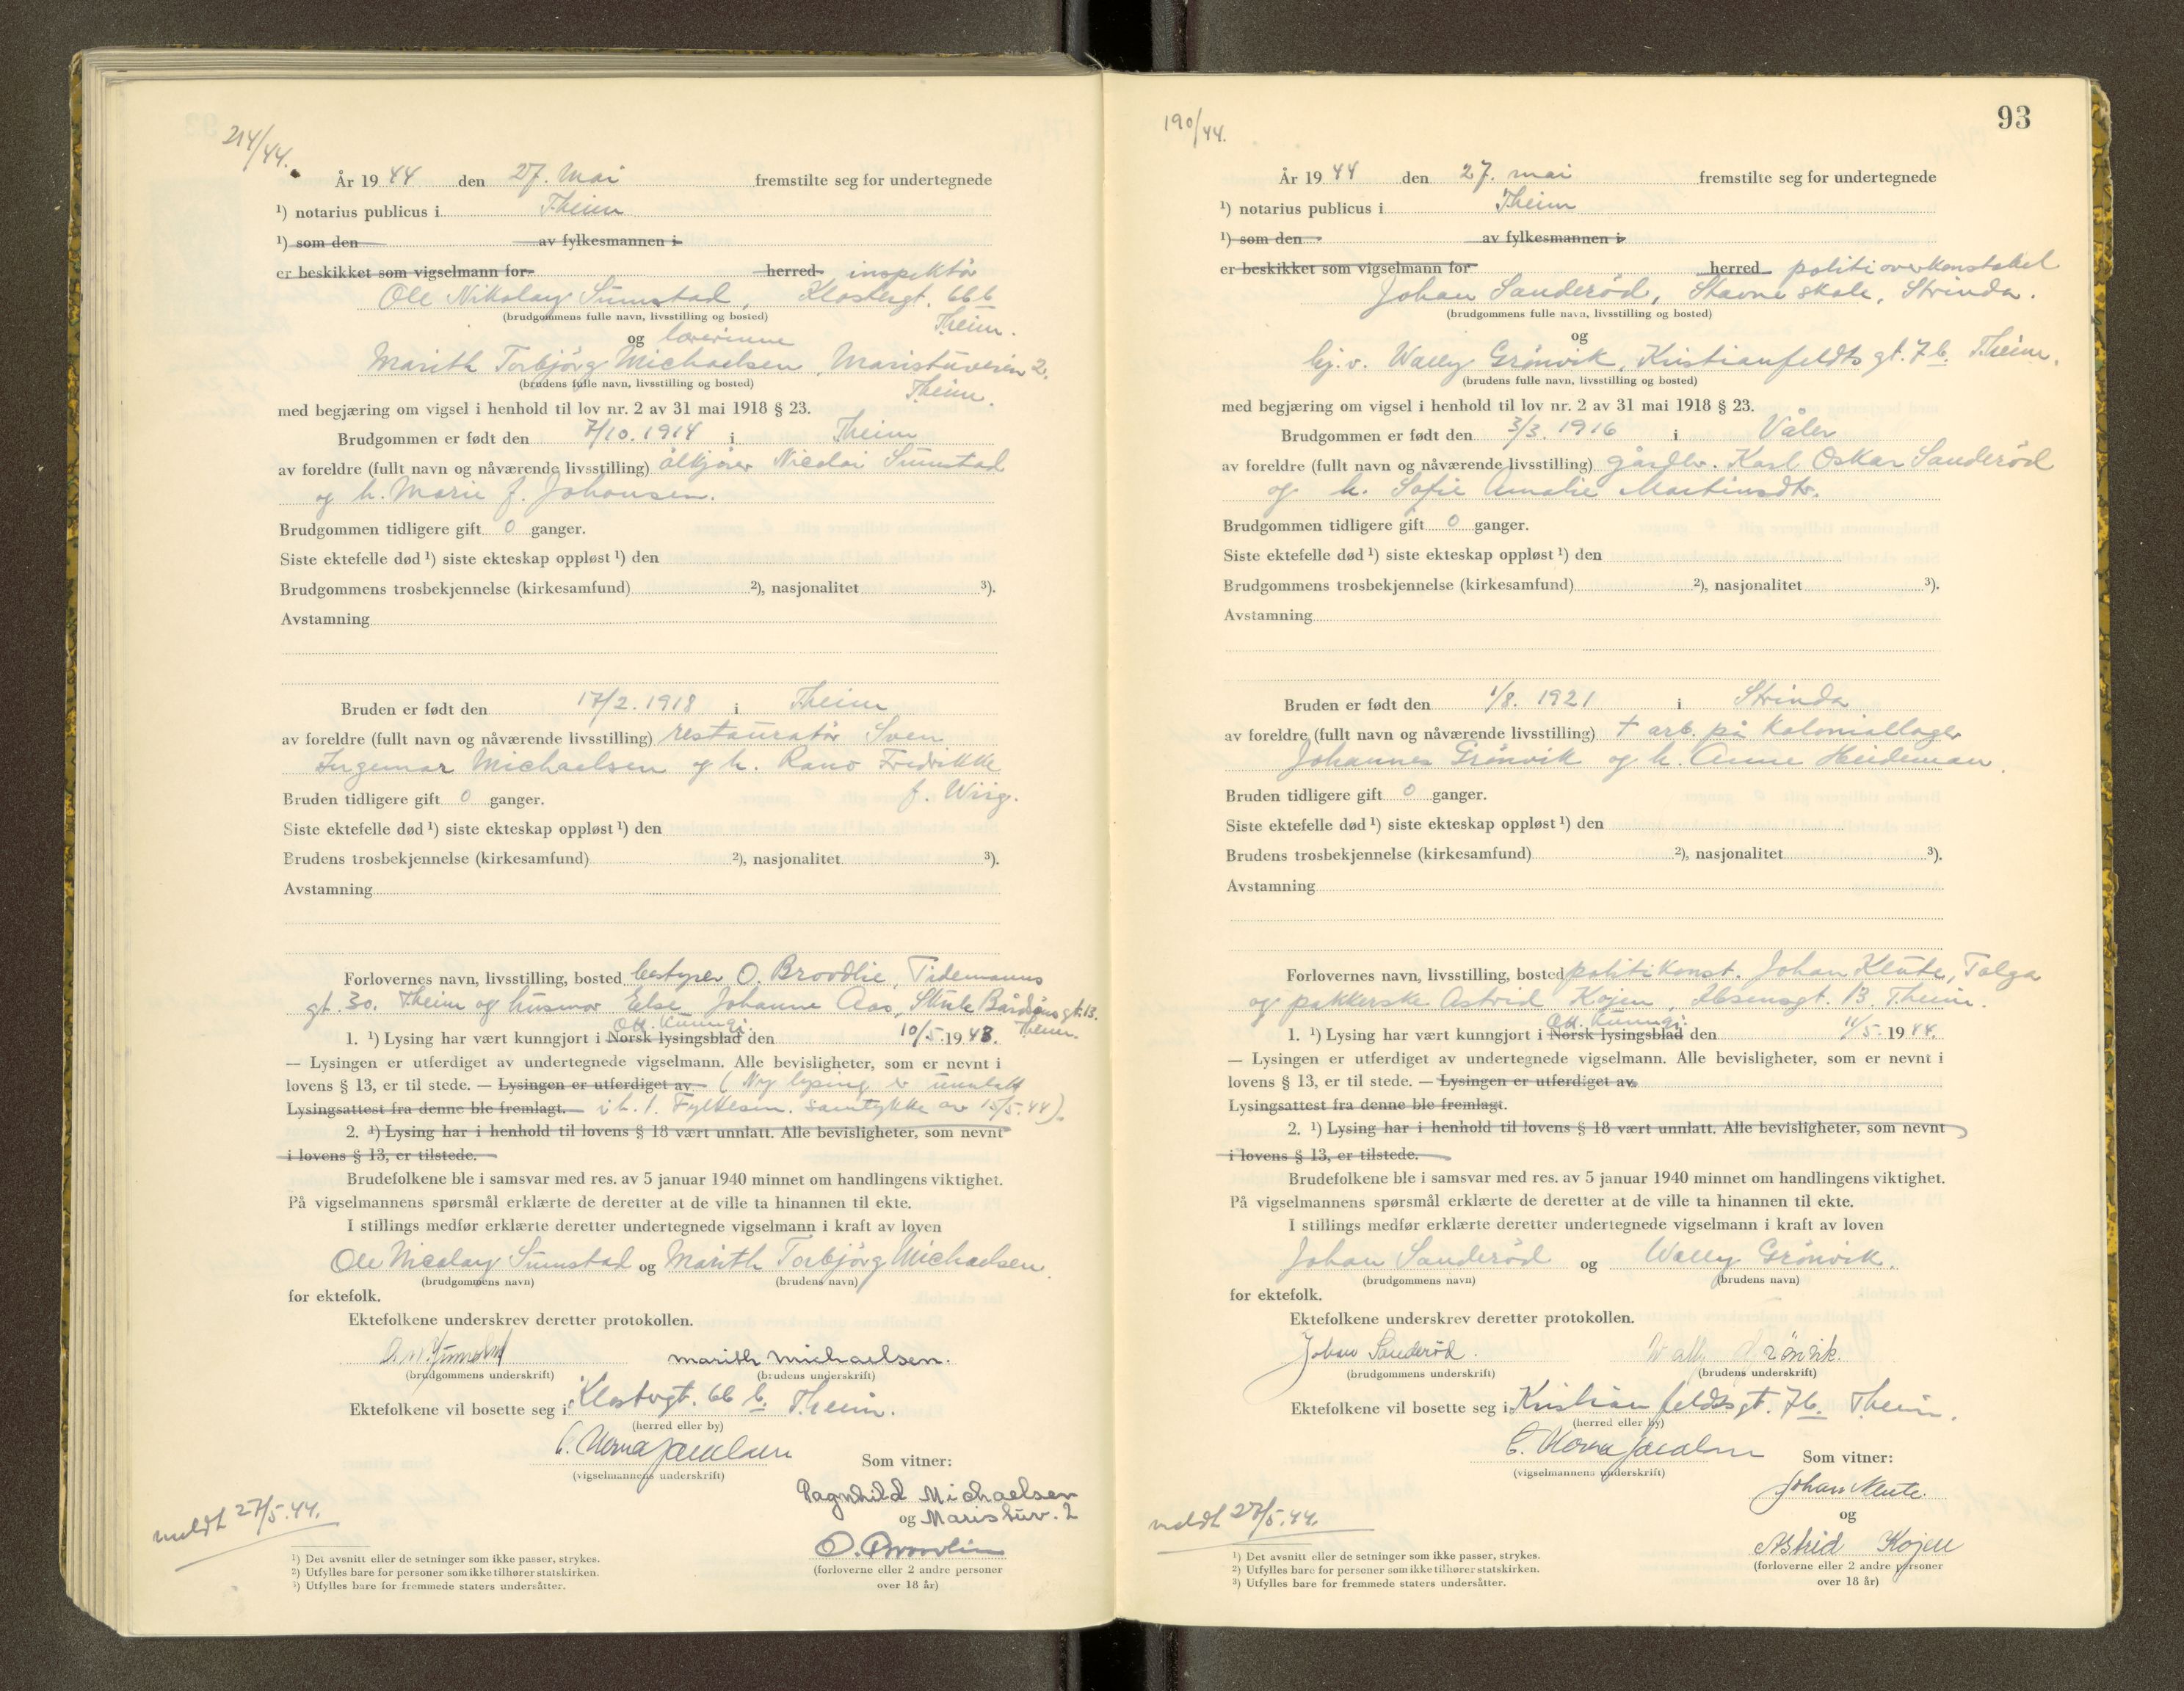 214/44.
År 1944 den 27. Mai fremstilte seg for undertegnede
¹) notarius publicus i Theim
¹) som den av fylkesmannen i
er beskikket som vigselmann for herred inspektör
Ole Nikolay Sumstad, Klostergt. 66 b
(brudgommens fulle navn, livsstilling og bosted) Theim.
og lærerinne
Marith Torbjörg Michaelsen, Maristuveien 2.
(brudens fulle navn, livsstilling og bosted) Theim.
med begjæring om vigsel i henhold til lov nr. 2 av 31 mai 1918 § 23.
Brudgommen er født den 7/10. 1914 i Theim
av foreldre (fullt navn og nåværende livsstilling) ölkjörer Nicolai Sumstad
og h. Marie f. Johansen.
Brudgommen tidligere gift 0 ganger.
Siste ektefelle død ¹) siste ekteskap oppløst ¹) den
Brudgommens trosbekjennelse (kirkesamfund) ²), nasjonalitet ³).
Avstamning
Bruden er født den 17/2. 1918 i Theim
av foreldre (fullt navn og nåværende livsstilling) restauratör Sven
Ingemar Michaelsen og h. Rano Fredrikke
Bruden tidligere gift 0 ganger. f. Wiig.
Siste ektefelle død ¹) siste ekteskap oppløst ¹) den
Brudens trosbekjennelse (kirkesamfund) ²), nasjonalitet ³).
Avstamning
Forlovernes navn, livsstilling, bosted bestyrer O. Broodlie, Tidemanns
gt. 30. Theim og husmor Else Johanne Aas, Skule Bårdsönsgt. 13.
Off. kunngj. Theim.
1. ¹) Lysing har vært kunngjort i Norsk lysingsblad den 10/5. 1943.
— Lysingen er utferdiget av undertegnede vigselmann. Alle bevisligheter, som er nevnt i
lovens § 13, er til stede. — Lysingen er utferdiget av (Ny lysing er unnlatt
Lysingsattest fra denne ble fremlagt. i h. t. Fylkesm. samtykke av 15/5. 44).
2. ¹) Lysing har i henhold til lovens § 18 vært unnlatt. Alle bevisligheter, som nevnt
i lovens § 13, er tilstede.
Brudefolkene ble i samsvar med res. av 5 januar 1940 minnet om handlingens viktighet.
På vigselmannens spørsmål erklærte de deretter at de ville ta hinannen til ekte.
I stillings medfør erklærte deretter undertegnede vigselmann i kraft av loven
Ole Nicolay Sumstad og Marith Torbjörg Michaelsen.
(brudgommens navn) (brudens navn)
for ektefolk.
Ektefolkene underskrev deretter protokollen.
O. N. Sumstad Marith Michaelsen.
(brudgommens underskrift) (brudens underskrift)
Ektefolkene vil bosette seg i Klostergt. 66 b. Theim.
(herred eller by)
(vigselmannens underskrift) Som vitner:
Ragnhild Michaelsen
og Maristuv. 2
meldt 27/5. 44.
O. Broodlie
(forloverne eller 2 andre personer
over 18 år)
¹) Det avsnitt eller de setninger som ikke passer, strykes.
²) Utfylles bare for personer som ikke tilhører statskirken.
³) Utfylles bare for fremmede staters undersåtter.
93
190/44.
År 1944 den 27. mai fremstilte seg for undertegnede
¹) notarius publicus i Theim
¹) som den av fylkesmannen i
er beskikket som vigselmann for herred politioverkonstabel
Johan Sanderöd, Stavne skole, Strinda.
(brudgommens fulle navn, livsstilling og bosted)
og
hj.v. Wally Grönvik, Kristianfeldts gt. 7 b. Theim.
(brudens fulle navn, livsstilling og bosted)
med begjæring om vigsel i henhold til lov nr. 2 av 31 mai 1918 § 23.
Brudgommen er født den 3/3. 1916 i Våler
av foreldre (fullt navn og nåværende livsstilling) gårdbr. Karl Oskar Sanderöd
og h. Sofie Amalie Martinsdtr.
Brudgommen tidligere gift 0 ganger.
Siste ektefelle død ¹) siste ekteskap oppløst ¹) den
Brudgommens trosbekjennelse (kirkesamfund) ²), nasjonalitet ³).
Avstamning
Bruden er født den 1/8. 1921 i Strinda
av foreldre (fullt navn og nåværende livsstilling) + arb. på koloniallager
Johannes Grönvik og h. Anne Heideman.
Bruden tidligere gift 0 ganger.
Siste ektefelle død ¹) siste ekteskap oppløst ¹) den
Brudens trosbekjennelse (kirkesamfund) ²), nasjonalitet ³).
Avstamning
Forlovernes navn, livsstilling, bosted politikonst. Johan Klute, Tolga
og pakkerske Astrid Kojen, Ibsensgt. 13. Theim.
Off. kunngj.
1. ¹) Lysing har vært kunngjort i Norsk lysingsblad den 11/5. 1944.
— Lysingen er utferdiget av undertegnede vigselmann. Alle bevisligheter, som er nevnt i
lovens § 13, er til stede. — Lysingen er utferdiget av
Lysingsattest fra denne ble fremlagt.
2. ¹) Lysing har i henhold til lovens § 18 vært unnlatt. Alle bevisligheter, som nevnt
i lovens § 13, er tilstede.
Brudefolkene ble i samsvar med res. av 5 januar 1940 minnet om handlingens viktighet.
På vigselmannens spørsmål erklærte de deretter at de ville ta hinannen til ekte.
I stillings medfør erklærte deretter undertegnede vigselmann i kraft av loven
Johan Sanderöd og Wally Grönvik.
(brudgommens navn) (brudens navn)
for ektefolk.
Ektefolkene underskrev deretter protokollen.
Johan Sanderöd. Wally Grönvik.
(brudgommens underskrift) (brudens underskrift)
Ektefolkene vil bosette seg i Kristianfeldtsgt. 7 b. Theim.
(herred eller by)
(vigselmannens underskrift) Som vitner:
Johan Klute.
og
meldt 27/5. 44.
Astrid Kojen
(forloverne eller 2 andre personer
over 18 år)
¹) Det avsnitt eller de setninger som ikke passer, strykes.
²) Utfylles bare for personer som ikke tilhører statskirken.
³) Utfylles bare for fremmede staters undersåtter.